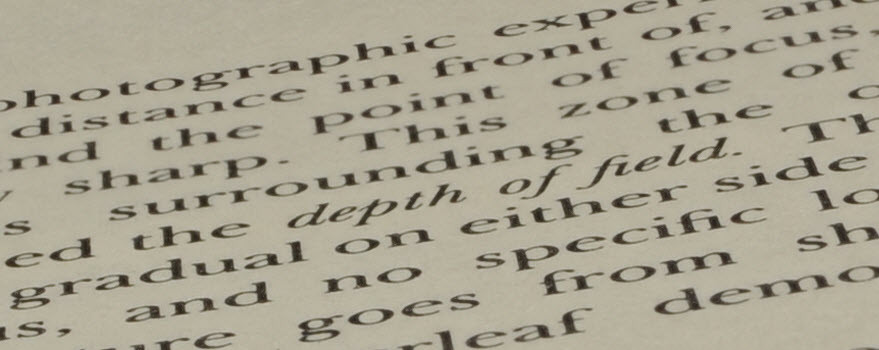 photographic exper
distance in front of, an
nd the point of focus,
y sharp. This zone of
s surrounding the
ed the depth of field. Th
gradual on either side
us, and no specific lo
ure goes from sh
rleaf demo